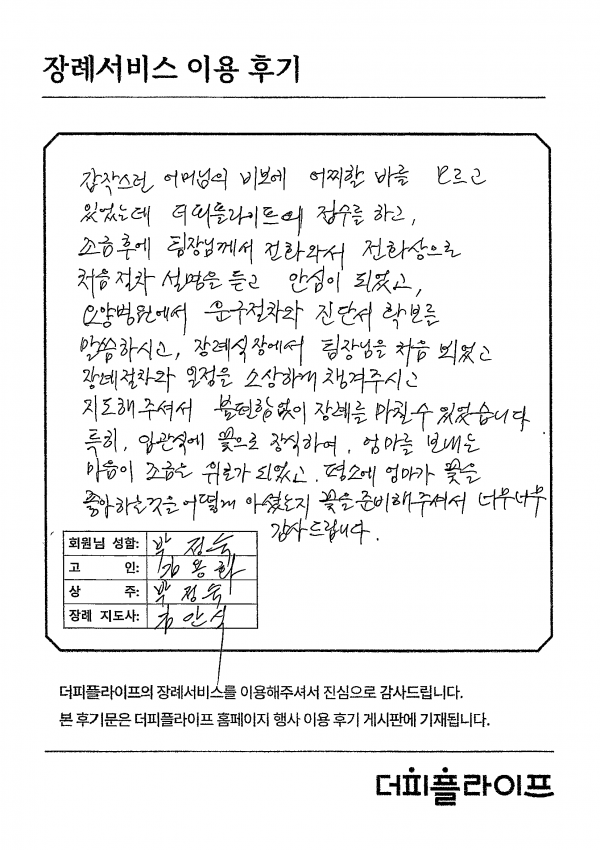 장례서비스 이용 후기
갑작스런 어머님의 비보에 어찌할 바를 모르고
있었는데 더피플라이프의 접수를 하고,
조금후에 팀장님께서 전화와서 전화상으로
처음절차 설명을 듣고 안심이 되었고,
요양병원에서 운구절차와 진단서 확보를
말씀하시고, 장례식장에서 팀장님을 처음 뵈었고
장례절차와 일정을 소상하게 챙겨주시고
지도해주셔서 불편함없이 장례를 마칠수 있었습니다
특히, 입관식에 꽃으로 장식하여, 엄마를 보내는
마음이 조금은 위로가 되었고. 평소에 엄마가 꽃을
좋아하는것을 어떻게 아셨는지 꽃을 준비해주셔서 너무너무
감사드립니다.
회원님 성함: 박 정숙
고 인: 김 용화
상 주: 박 정숙
장례 지도사: 김 안식
더피플라이프의 장례서비스를 이용해주셔서 진심으로 감사드립니다.
본 후기문은 더피플라이프 홈페이지 행사 이용 후기 게시판에 기재됩니다.
더피플라이프